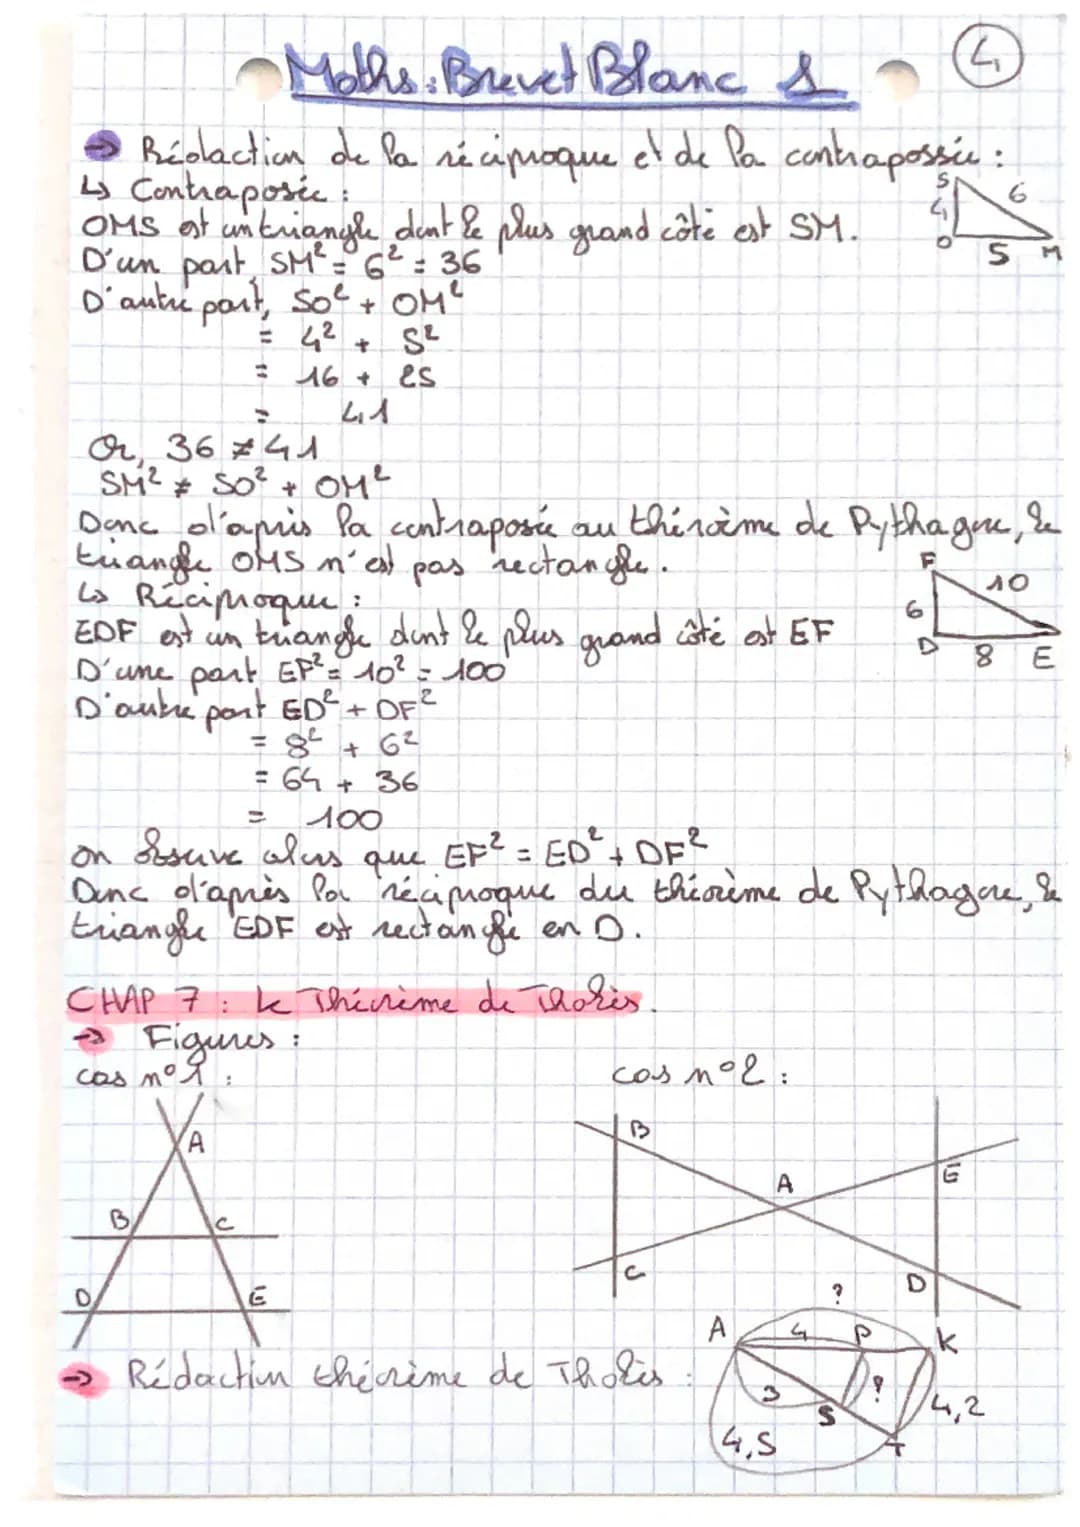 Maths : Brevet Blanc 1
4
→ Rédaction de la réciproque et de la contrapossée :
↳ Contraposée :
OMS est un triangle dont le plus grand côté est SM.
S 6
4
O 5 M
D'un part, SM² = 6² = 36
D'autre part, SO² + OM²
= 4² + 5²
= 16 + 25
= 41
Or, 36 ≠ 41
SM² ≠ SO² + OM²
Donc d'après la contraposée au théroème de Pythagore, le
triangle OMS n'est pas rectangle.
↳ Réciproque :
F
10
6
D 8 E
EDF est un triangle dont le plus grand côté est EF
D'une part EF² = 10² = 100
D'autre part ED² + DF²
= 8² + 6²
= 64 + 36
= 100
on observe alors que EF² = ED² + DF²
Donc d'après la réciproque du théorème de Pythagore, le
triangle EDF est rectangle en D.
CHAP 7 : le Théorème de Thalès.
→ Figures :
cas n°1 :
cas n°2 :
A
B C
D E
B
A E
C D
→ Rédaction théorème de Thalès :
?
A 4 P K
3 S ? 4,2
4,5 T